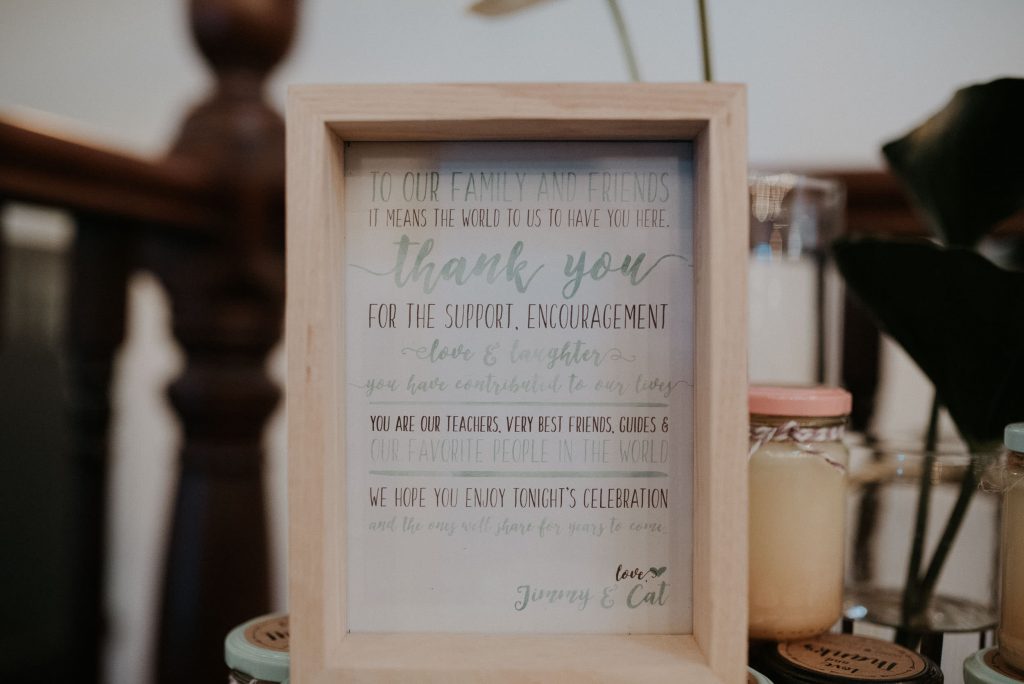 TO OUR FAMILY AND FRIENDS
IT MEANS THE WORLD TO US TO HAVE YOU HERE.
thank you
FOR THE SUPPORT, ENCOURAGEMENT
love & laughter
you have contributed to our lives
YOU ARE OUR TEACHERS, VERY BEST FRIENDS, GUIDES &
OUR FAVORITE PEOPLE IN THE WORLD
WE HOPE YOU ENJOY TONIGHT'S CELEBRATION
and the ones we'll share for years to come.
love,
Jimmy & Cat
love
and
Thanks